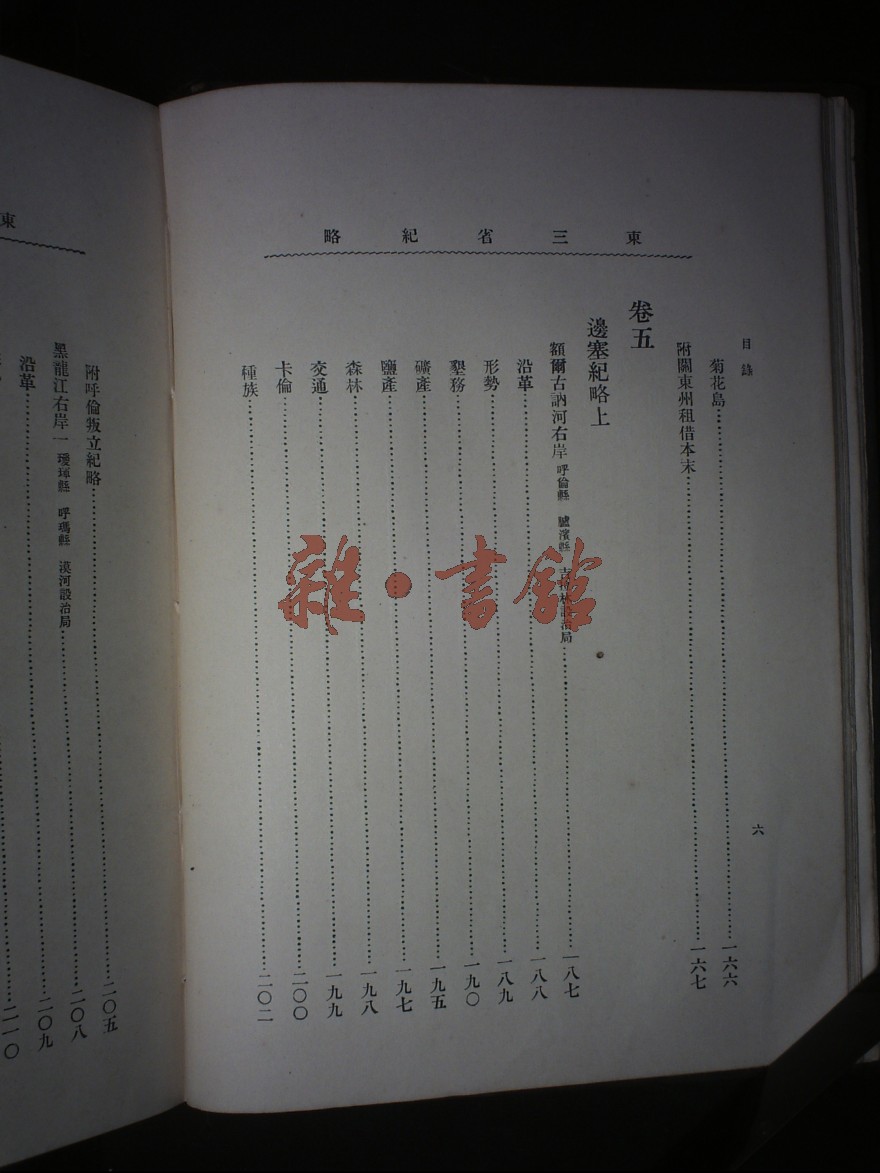 東三省紀略
目錄
六
菊花島 一六六
附關東州租借本末 一六七
卷五
邊塞紀略上
額爾古訥河右岸 呼倫縣 臚濱縣 吉拉林設治局 一八七
沿革 一八八
形勢 一八九
墾務 一九〇
礦產 一九五
鹽產 一九七
森林 一九八
交通 一九九
卡倫 二〇〇
種族 二〇二
東
附呼倫叛立紀略 二〇五
黑龍江右岸一 璦琿縣 呼瑪縣 漠河設治局 二〇八
沿革 二〇九
二一〇
雜·書館